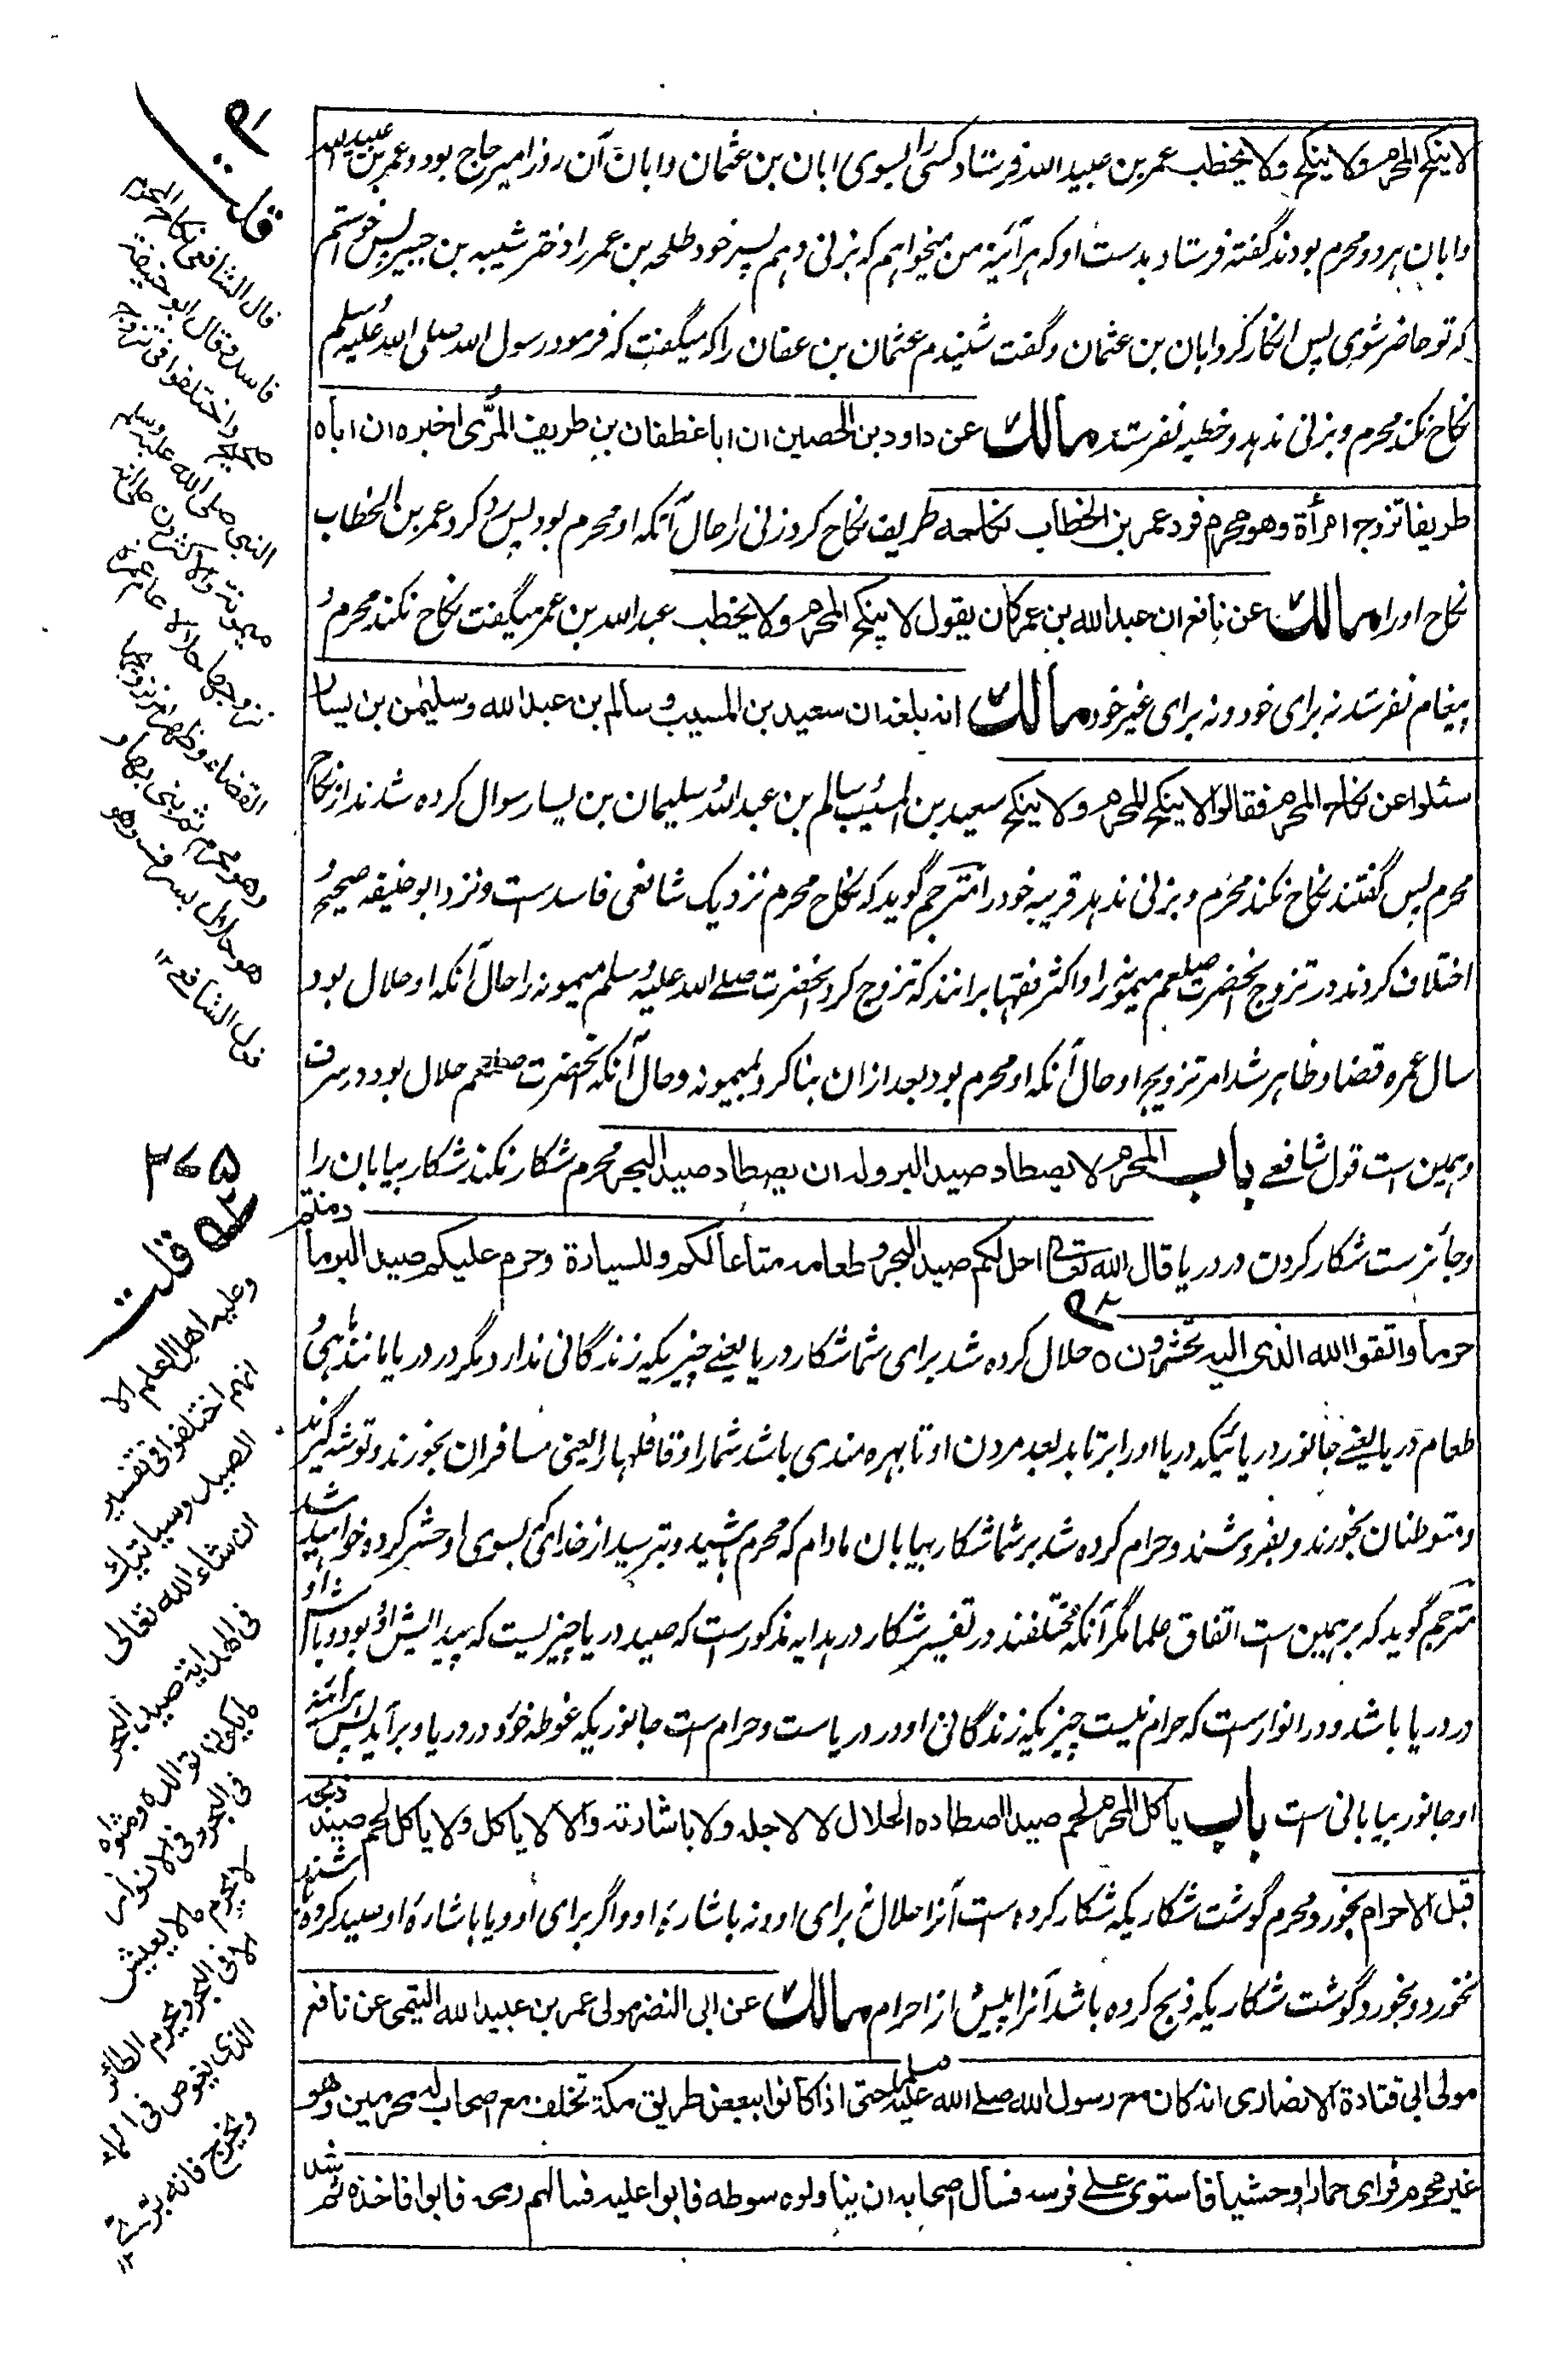 لا ینکح المحرم ولا ینکح ولا یخطب عمر بن عبید الله فرستاد کسی را بسوی ابان بن عثمان و ابان آن روز امیر حاج بود و عمر بن عبید الله
و ابان هر دو محرم بودند گفته فرستاد بدست او که هر آئینه من میخواهم که بزنی دهم پسر خود طلحه بن عمر را دختر شیبه بن جبیر پس خواستم
که تو حاضر شوی پس انکار کرد ابان بن عثمان و گفت شنیدم عثمان بن عفان را که میگفت که فرمود رسول الله صلی الله علیه وسلم
نکاح نکند محرم و بزنی ندهد و خطبه نفرستد مالك عن داود بن الحصین ان ابا غطفان بن طریف المُرّی اخبره ان اباه
طریفا تزوج امرأة وهو محرم فرد عمر بن الخطاب نکاحه طریف نکاح کرد زنی را حال آنکه او محرم بود پس رد کرد عمر بن الخطاب
نکاح او را مالك عن نافع ان عبد الله بن عمر کان یقول لا ینکح المحرم ولا یخطب عبد الله بن عمر میگفت نکاح نکند محرم و
پیغام نفرستد نه برای خود و نه برای غیر خود مالك انه بلغه ان سعید بن المسیب و سالم بن عبد الله وسلیمٰن بن یسار
سئلوا عن نکاح المحرم فقالوا لا ینکح المحرم ولا ینکح سعید بن المسیب سالم بن عبد الله و سلیمان بن یسار سوال کرده شدند از نکاح
محرم پس گفتند نکاح نکند محرم و بزنی ندهد قریبه خود را مترجم گوید که نکاح محرم نزدیک شافعی فاسد ست و نزد ابو حنیفه صحیح و
اختلاف کردند در تزوج آنحضرت صلعم میمونه را و اکثر فقها برانند که تزوج کرد آنحضرت صلے الله علیه وسلم میمونه را حال آنکه او حلال بود
سال عمره قضا و ظاهر شد امر تزویج او حال آنکه او محرم بود بعد ازان بنا کرد بمیمونه و حال آنکه آنحضرت صلعم حلال بود در سرف
و همین ست قول شافعے باب المحرم لا یصطاد صید البر وله ان یصطاد صید البحر محرم شکار نکند شکار بیابان را
و جائز ست شکار کردن در دریا قال الله تعالیٰ احل لکم صید البحر وطعامه متاعا لکم وللسیارة وحرم علیکم صید البر ما دمتم
حرما واتقوا الله الذی الیه تحشرون ٥ حلال کرده شد برای شما شکار دریا یعنے چیزیکه زندگانی ندارد مگر در دریا مانند ماهی و
طعام دریا یعنے جانور دریائیکه دریا او را برتابد بعد مردن او تا بهره مندی باشد شما را و قافلها را یعنی مسافران بخورند و توشه گیرند
و متوطنان بخورند و بفروشند و حرام کرده شد بر شما شکار بیابان مادام که محرم باشید و بترسید از خدای که بسوی او حشر کرده خواهید شد
مترجم گوید که بر همین ست اتفاق علما مگر آنکه مختلفند در تفسیر شکار در هدایه مذکور ست که صید دریا چیزیست که پیدایش او و بود و باش او
در دریا باشد و در انوار ست که حرام نیست چیزیکه زندگانی او در دریاست و حرام ست جانوریکه غوطه خورد در دریا و برآید پس هرآئینه
او جانور بیابانی ست باب یاکل المحرم لحم صید اصطاده الحلال لا لاجله ولا باشارته والا لا یاکل ولا یاکل لحم صید ذبحه
قبل الاحرام بخورد محرم گوشت شکاریکه شکار کرده ست آنرا حلال نه برای او و نه باشارۀ او و اگر برای او و یا باشارۀ او صید کرده باشند
نخورد و بخورد گوشت شکاریکه ذبح کرده باشد آنرا پیش از احرام مالك عن ابی النضر مولی عمر بن عبید الله التیمی عن نافع
مولی ابی قتادة الانصاری انه کان مع رسول الله صلے الله علیه وسلم حتی اذا کانوا ببعض طریق مکة تخلف مع اصحاب له محرمین وهو
غیر محرم فرای حمارا وحشیا فاستوی علی فرسه فسأل اصحابه ان یناولوه سوطه فابوا علیه فسألهم رمحه فابوا فاخذه ثم شد
قلت
قال الشافعی نکاح المحرم
فاسد وقال ابو حنیفة
صحیح واختلفوا فی تزوج
النبی صلی الله علیه وسلم
میمونة والاکثرون علی انه
تزوجها حلالا عام عمرة
القضاء وظهر امر تزویجها
وهو محرم ثم بنی بها و
هو حلال بسرف وهو
قول الشافعے ١٢
٣٦٥
قلت
وعلیه اهل العلم الا
انهم اختلفوا فی تفسیر
الصید وسیاتیك
ان شاء الله تعالی
فی الهدایة صید البحر
ما یکون توالده ومثواه
فی البحر وفی الانوار
لا یحرم ما لا یعیش
الا فی البحر ویحرم الطائر
الذی یغوص فی الماء
ویخرج فانه بری ١٢